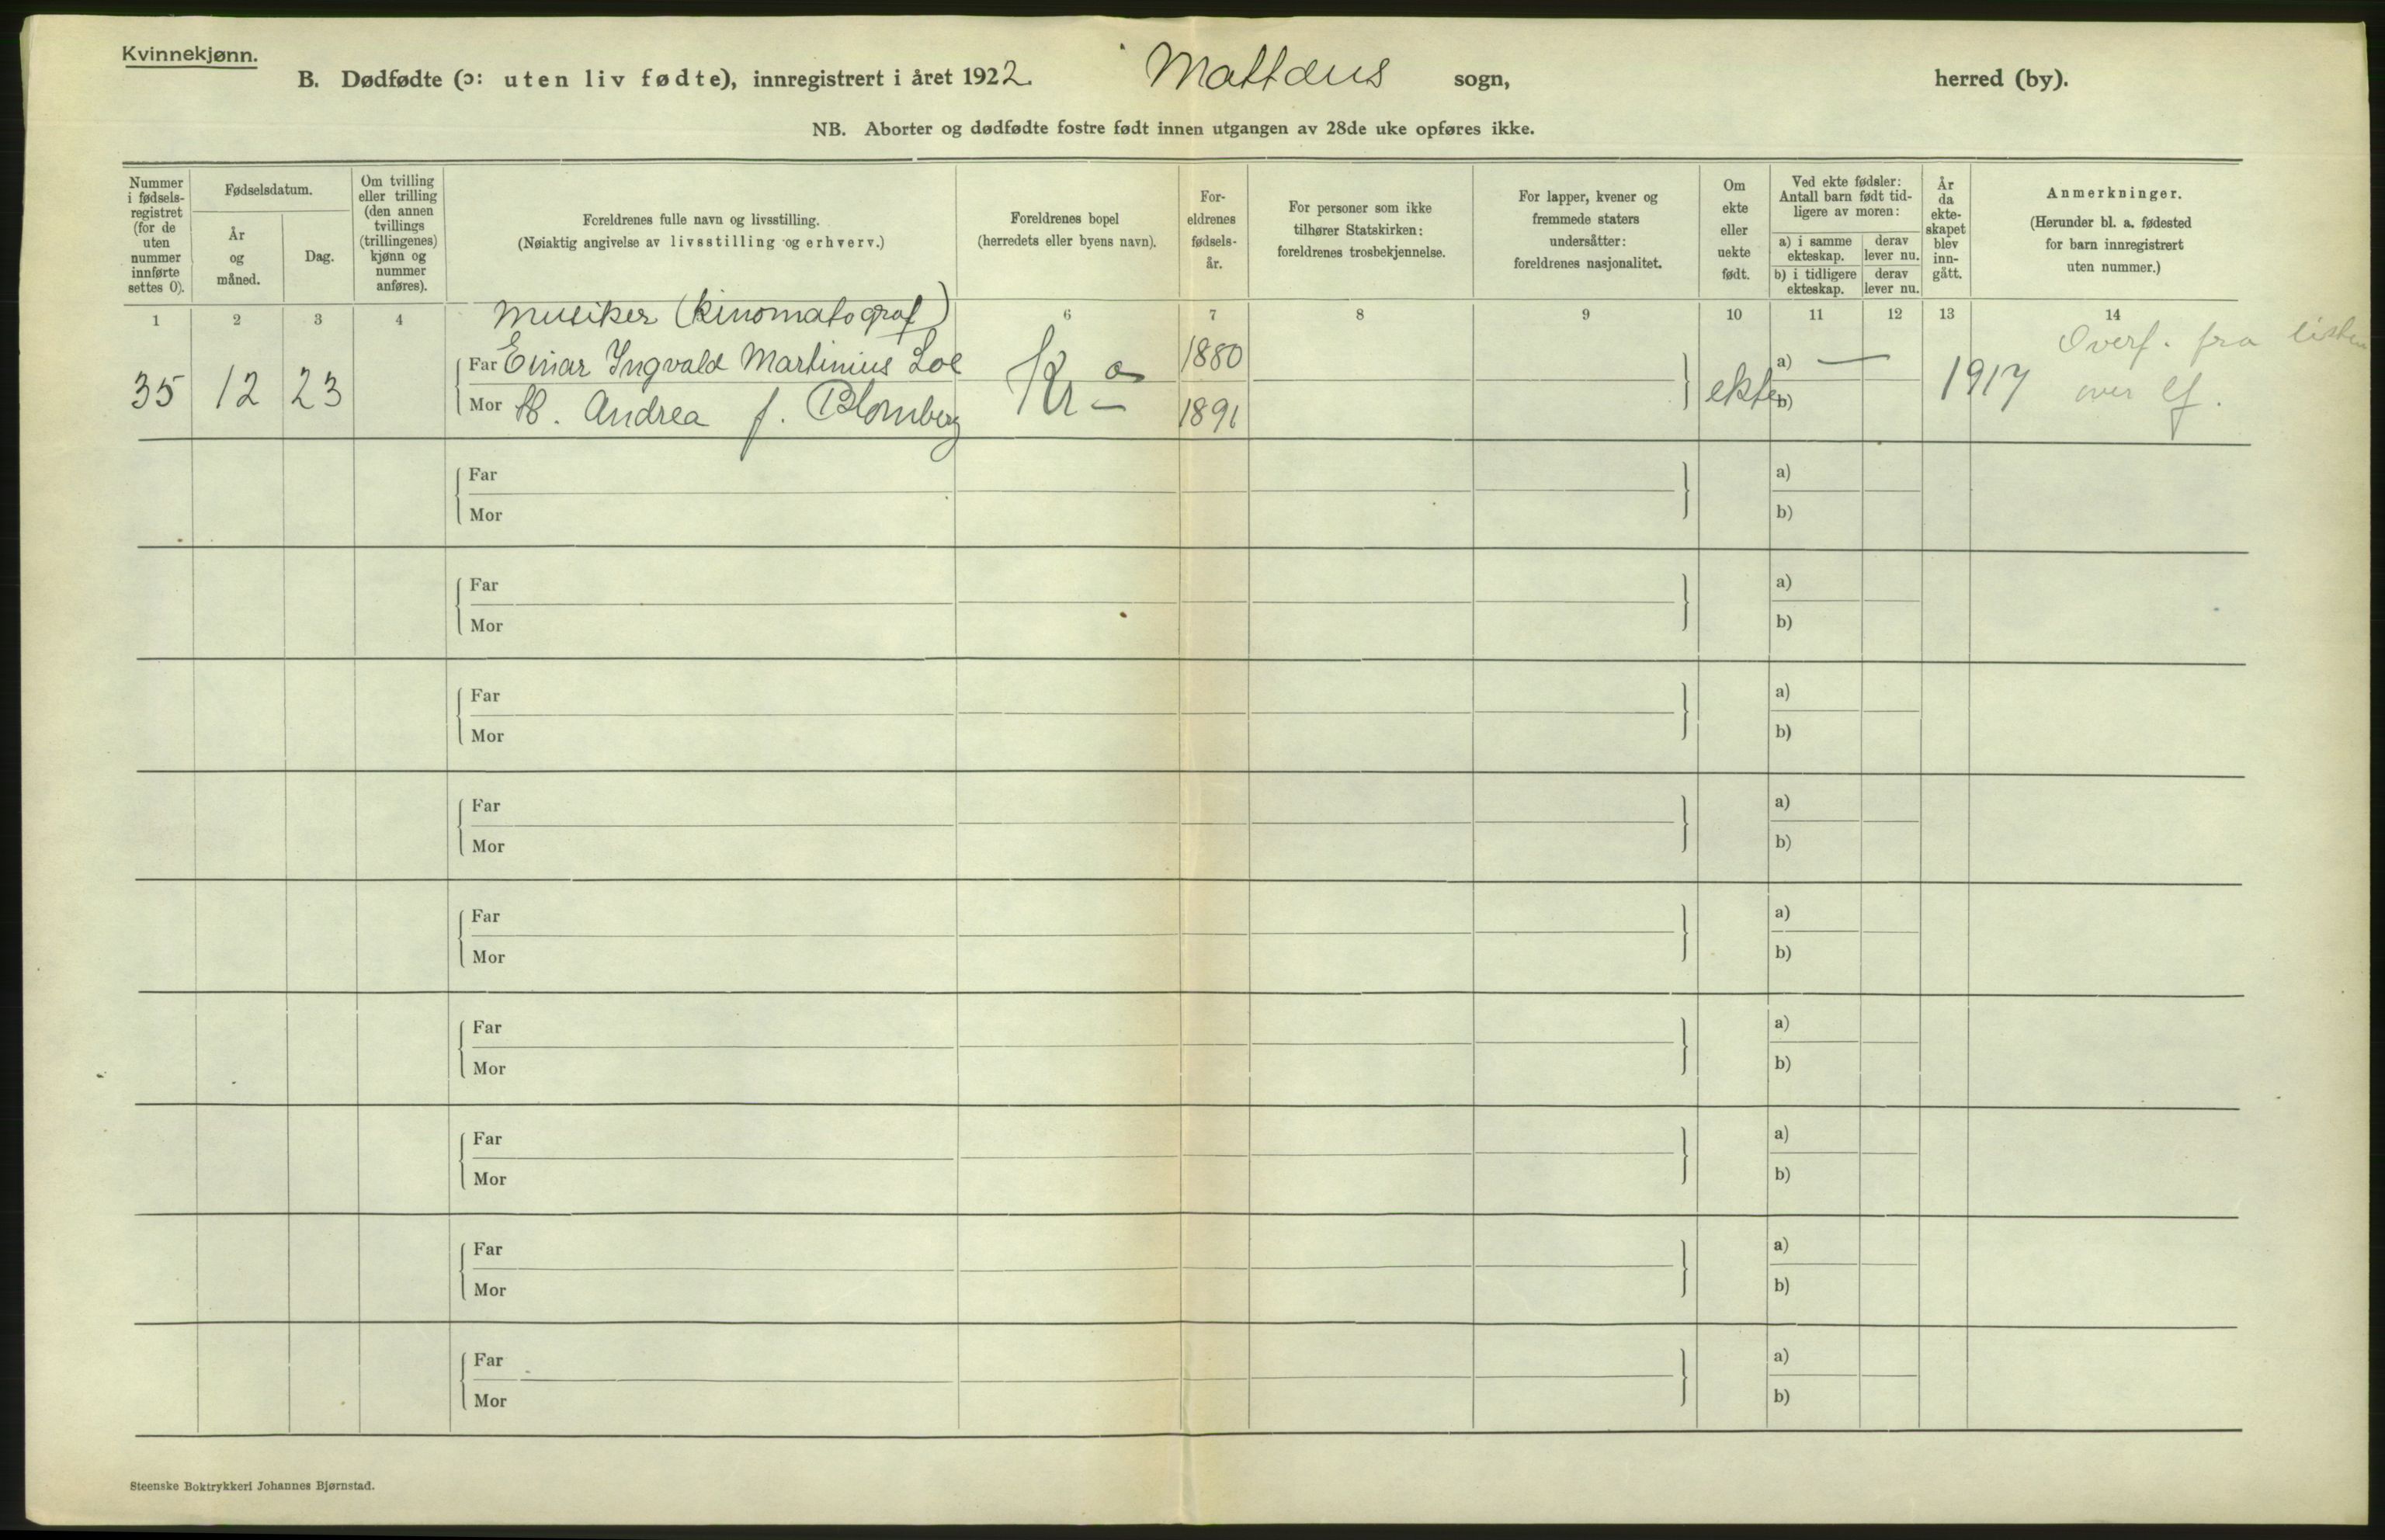 Kvinnekjønn.
B. Dødfødte (ɔ: uten liv fødte), innregistrert i året 1922. Mattæus sogn, herred (by).
NB. Aborter og dødfødte fostre født innen utgangen av 28de uke opføres ikke.
Nummer i fødsels-registret (for de uten nummer innførte settes 0).
Fødselsdatum.
År og måned.
Dag.
Om tvilling eller trilling (den annen tvillings (trillingenes) kjønn og nummer anføres).
Foreldrenes fulle navn og livsstilling.
(Nøiaktig angivelse av livsstilling og erhverv.)
Foreldrenes bopel
(herredets eller byens navn).
For-eldrenes fødsels-år.
For personer som ikke tilhører Statskirken: foreldrenes trosbekjennelse.
For lapper, kvener og fremmede staters undersåtter: foreldrenes nasjonalitet.
Om ekte eller uekte født.
Ved ekte fødsler: Antall barn født tid-ligere av moren:
a) i samme ekteskap.
derav lever nu.
b) i tidligere ekteskap.
derav lever nu.
År da ekte-skapet blev inn-gått.
Anmerkninger.
(Herunder bl. a. fødested for barn innregistrert uten nummer.)
1 2 3 4 6 7 8 9 10 11 12 13 14
Musiker (kinomatograf)
35 12 23
Far Einar Ingvald Martinius Loe Kr a 1880 a) —
Mor H. Andrea f. Blomberg 1891 ekte b) 1917
Overf. fra listen
over lf.
Far a)
Mor b)
Far a)
Mor b)
Far a)
Mor b)
Far a)
Mor b)
Far a)
Mor b)
Far a)
Mor b)
Far a)
Mor b)
Far a)
Mor b)
Far a)
Mor b)
Steenske Boktrykkeri Johannes Bjørnstad.